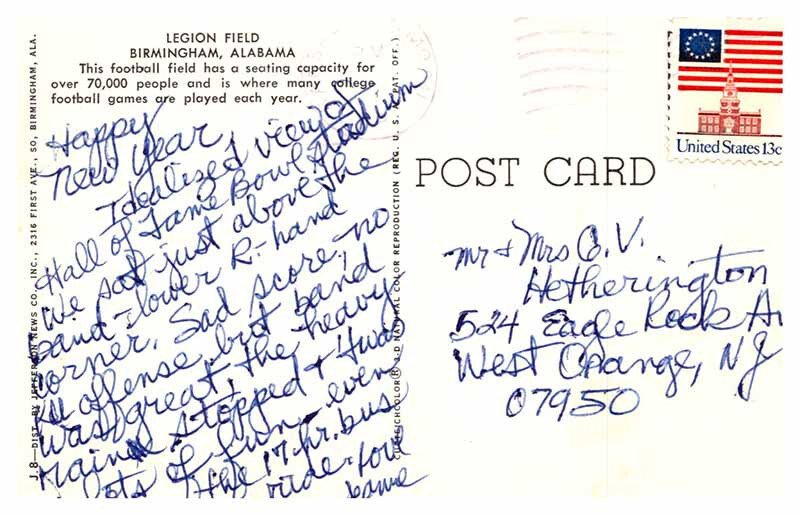 LEGION FIELD
BIRMINGHAM, ALABAMA
This football field has a seating capacity for
over 70,000 people and is where many college
football games are played each year.
Happy
New Year,
Idealized view of
Hall of Fame Bowl Stadium
We sat just above the
band - lower R. hand
corner. Sad score, no
KU offense, but band
was great, the heavy
rain stopped & 'twas
lots of fun - even
the 17-hr. bus
ride - four
J.8—DIST. BY JEFFERSON NEWS CO., INC., 2316 FIRST AVE., SO., BIRMINGHAM, ALA.
CURTEICHCOLOR® 3-D NATURAL COLOR REPRODUCTION (REG. U. S. A. PAT. OFF.)
POST CARD
United States 13c
Mr & Mrs C. V.
Hetherington
524 Eagle Rock Av
West Orange, NJ
07950